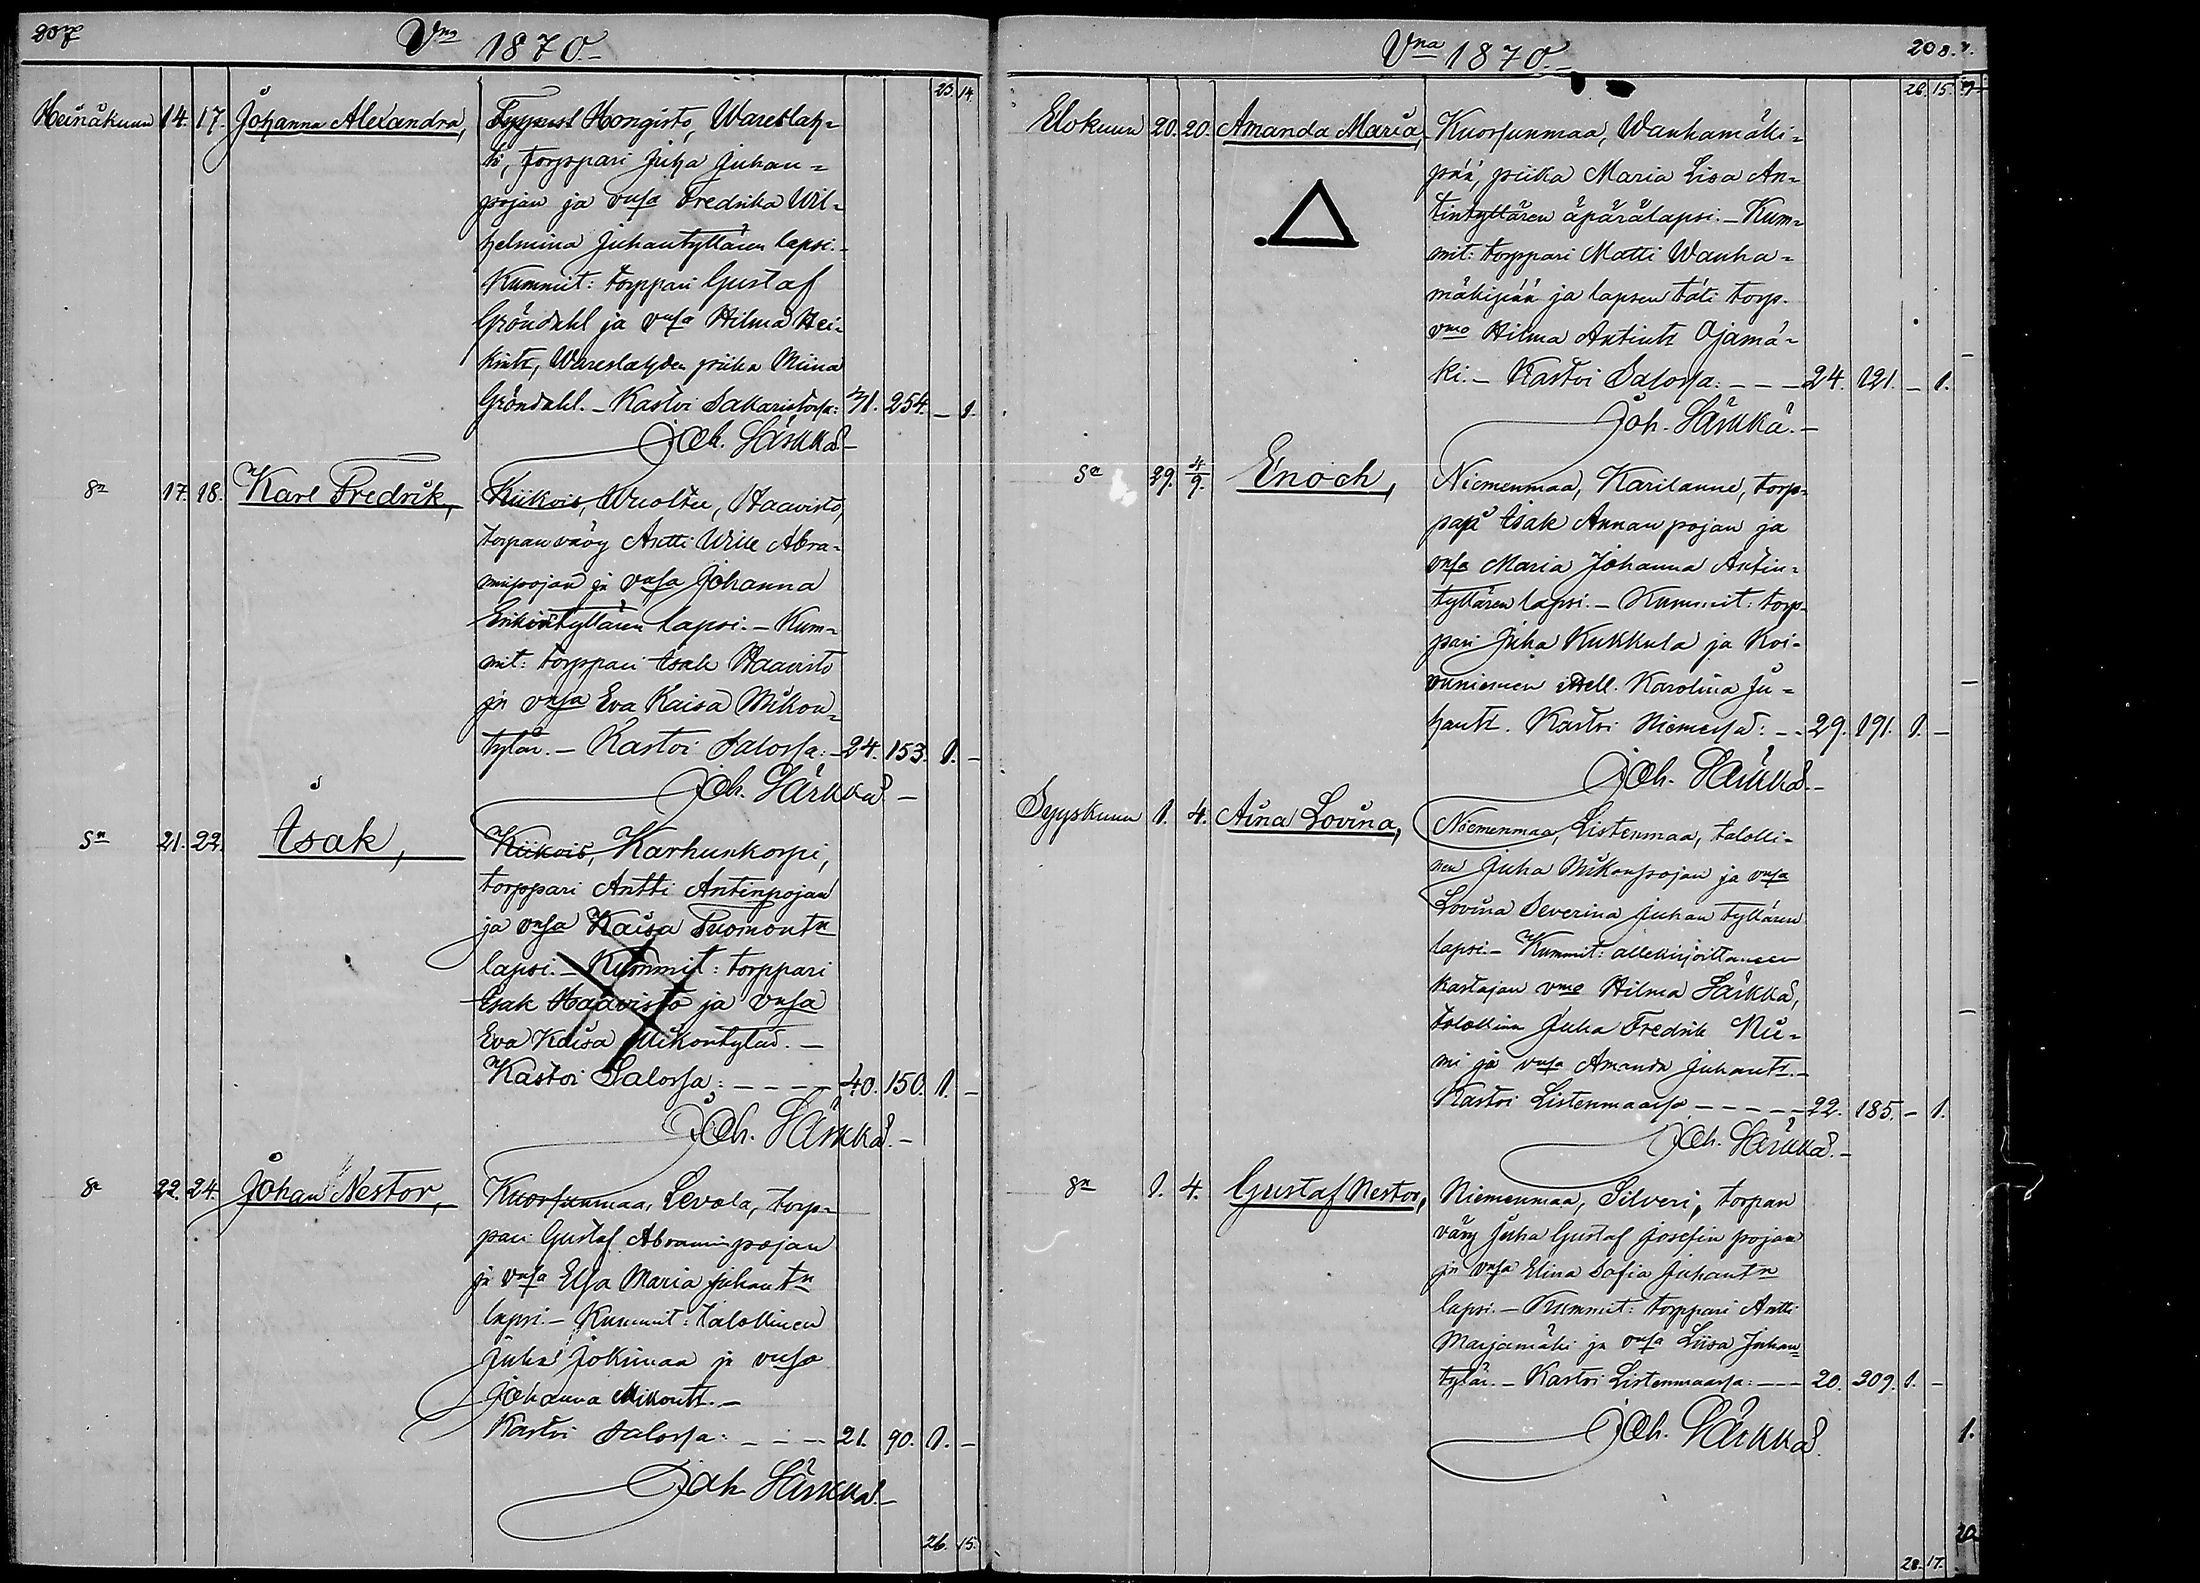 207
Vna 1870.-
23. 14.
Heinäkuun 14. 17. Johanna Alexandra, Hongisto, Wareslah=
ti, torppari Juha Juhan=
pojan ja vnsa Fredrika Wil=
helmina Juhantyttären lapsi.-
Kummit: torppari Gustaf
Gröndahl ja vnsa Hilma Hei=
kintr, Wareslahden piika Miina
Gröndahl. - Kastoi Sakaristossa: 254. - 1.
Joh. Särkkä.-
Sn 17. 18. Karl Fredrik, Kiikois, Haavisto,
torpan vävy Antti Wille Abra=
minpojan ja vnsa Johanna
Erkintyttären lapsi. - Kum=
mit: torppari Isak Haavisto
ja vnsa Eva Kaisa Mikon=
tytär. - Kastoi Salossa: - 24. 153. 1. -
Joh. Särkkä. -
Sn 21. 22. Isak, Kiikois, Karhunkorpi,
torppari Antti Antinpojan
ja vnsa Kaisa Tuomontr
lapsi. - Kummit: torppari
Isak Haavisto ja vnsa
Eva Kaisa Mikontytär. -
Kastoi Salossa: - - - - 40. 150. 1. -
Joh. Särkkä. -
Sn 22. 24. Johan Nestor, Kuorsunmaa, Levola, torp=
pari Gustaf Abraminpojan
ja vnsa Elsa Maria Juhantr
lapsi. - Kummit: talollinen
Juha Jokimaa ja vnsa
Johanna Mikontr. -
Kastoi Salossa: - - - 21. 90. 1. -
Joh. Särkkä.-
26. 15.
Vna 1870.-
208.
26. 15.
Elokuun 20. 20. Amanda Maria, Kuorsunmaa, Wanhamäki=
pää, piika Maria Lisa An=
tintyttären äpärälapsi. - Kum=
mit: torppari Matti Wanha=
mäkipää ja lapsen täti torp.
vmo Hilma Antintr Ojamä=
ki. - Kastoi Salossa: - - - 24. 121. - 1.
Joh. Särkkä. -
Sn 29. 4/9. Enoch, Niemenmaa, Karilanne, torp=
pari Isak Annanpojan ja
vnsa Maria Johanna Antin=
tyttären lapsi. - Kummit: torp=
pari Juha Kukkula ja Koi=
vuniemen Karolina Ju=
hantr. Kastoi Niemessä: - - 29. 191. 1. -
Joh. Särkkä. -
Syyskuun 1. 4. Aina Lovina, Niemenmaa, Listenmaa, talolli=
nen Juha Mikonpojan ja vnsa
Lovina Severina Juhantyttären
lapsi. - Kummit: allekirjoittaneen
kastajan vmo Hilma Särkkä,
talollinen Juha Fredrik Nie=
mi ja vnsa Amanda Juhantr. -
Kastoi Listenmaassa - - - - - 22. 185. - 1.
Joh. Särkkä. -
Sn 1. 4. Gustaf Nestor, Niemenmaa, Silveri, torpan
vävy Juha Gustaf Josefin pojan
ja vnsa Elina Sofia Juhantr
lapsi. - Kummit: torppari Antti
Marjamäki ja vnsa Liisa Juhan=
tytär. - Kastoi Listenmaassa: - - - 20. 209. 1. -
Joh. Särkkä.
28. 17.